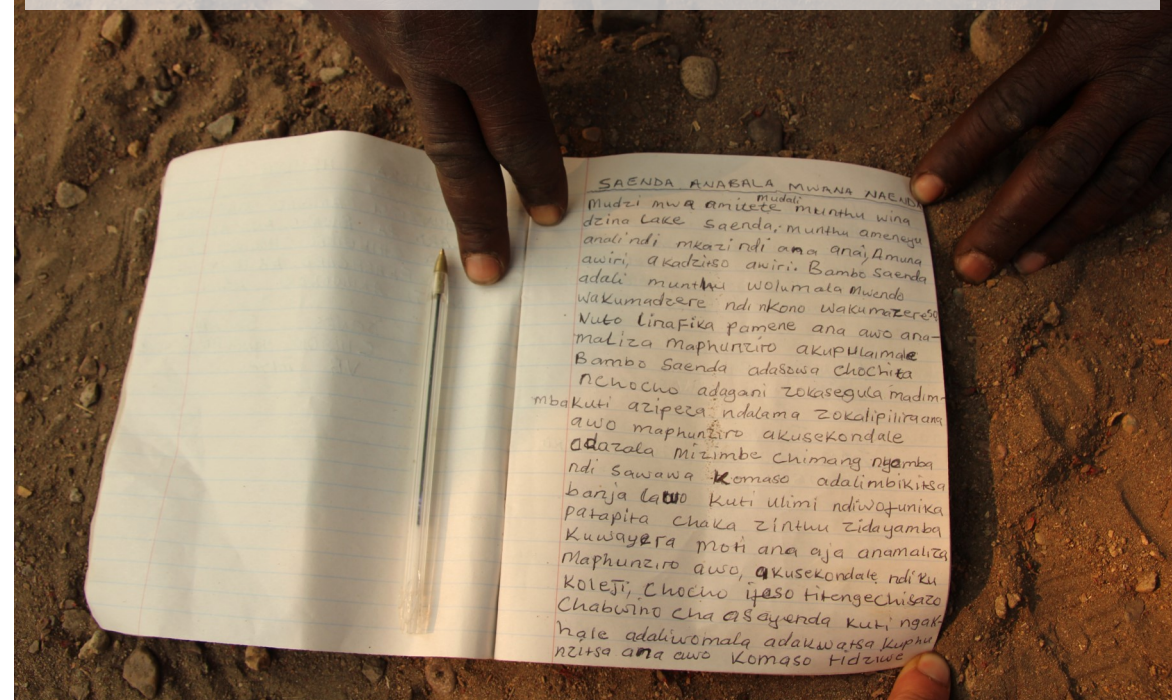 SAENDA ANABALA MWANA NAENDA
mudzi mwa amilete mudali munthu wina
dzina Lake Saenda, munthu ameneyu
anali ndi mkazi ndi ana anai, Amuna
awiri, akadzitso awiri. Bambo Saenda
adali munthu wolumala mwendo
wakumadzere ndi nkono wakumazereso
Nuto linafika pamene ana awo ana-
maliza maphunziro akupulaimale
Bambo Saenda adasowa chochita
nchocho adagani zokasegula madim-
mba kuti azipeza ndalama zokalipilira ana
awo maphunziro akusekondale
adazala mizimbe chimang nyemba
ndi sawawa Komaso adalimbikitsa
banja lawo kuti ulimi ndiwofunika
patapita chaka zinthu zidayamba
kuwayera moti ana aja anamaliza
maphunziro awo, akusekondale ndi ku
koleji, chocho ifeso titengechisazo
chabwino cha asayenda kuti ngak-
hale adaliwomala adakwatsa kuphu
nzitsa ana awo komaso tidziwe